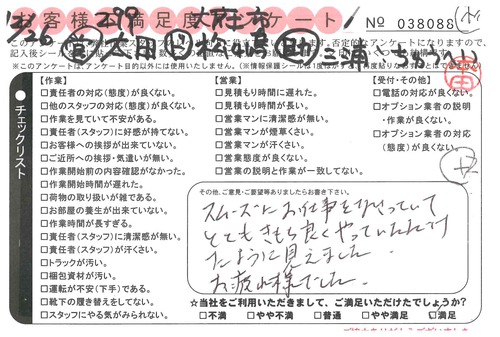 お客様 満足度 アンケート!
No 038088
12/26 299 大府市
営 太田 ドリ 松嶋 助 三浦、
※このアンケートは、アンケート目的以外には使用いたしません。
チェックリスト
【作業】
□責任者の対応(態度)が良くない。
□他のスタッフの対応(態度)が良くない。
□作業を見ていて不安がある。
□責任者(スタッフ)に好感が持てない。
□お客様への挨拶が出来ていない。
□ご近所への挨拶・気遣いが無い。
□作業開始前の内容確認がなかった。
□作業開始時間が遅れた。
□荷物の取り扱いが雑である。
□お部屋の養生が出来ていない。
□作業時間が長すぎる。
□責任者(スタッフ)に清潔感が無い。
□責任者(スタッフ)が汗くさい。
□トラックが汚い。
□梱包資材が汚い。
□運転が不安(下手)である。
□靴下の履き替えをしてない。
□スタッフにやる気がみられない。
【営業】
□見積もり時間に遅れた。
□見積もり時間が長い。
□営業マンに清潔感が無い。
□営業マンが煙草くさい。
□営業マンが汗くさい。
□営業態度が良くない。
□営業の説明と作業が一致してない。
【受付・その他】
□電話の対応が良くない。
□オプション業者の説明
・作業が良くない。
□オプション業者の対応
(態度)が良くない。
その他、ご意見・ご要望等ありましたらお書き下さい。
スムーズにお仕事をなさっていて
とてもきもち良くやっていただけ
たように見えました
お疲れ様でした
☆当社をご利用いただきまして、ご満足いただけたでしょうか?
□不満 □やや不満 □普通 □やや満足 □満足